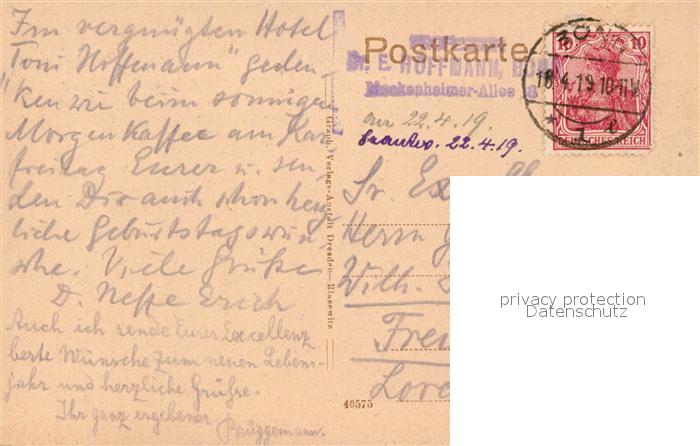 Im vergnügten Hotel
"Toni Hoffmann" geden-
ken wir beim sonnigen
Morgenkaffee am Kar
freitag Eurer u. sen-
den Dir auch schon herz
liche Geburtstagswün
sche. Viele Grüße
D. Neffe Erich
Auch ich sende Eurer Excellenz
beste Wünsche zum neuen Lebens-
jahr und herzliche Grüsse.
Ihr ganz ergebener
Brüggemann.
Graph. Verlags-Anstalt Dresden-Blasewitz
Postkarte
Dr. E. HOFFMANN, BONN
Meckenheimer-Allee 8
22.4.19.
22.4.19.
Sr. Ex
Herrn
Wilh.
Frei
Lor
40575
BONN
18.4.19.10-11V.
* 1
10 10
DEUTSCHES REICH
privacy protection
Datenschutz